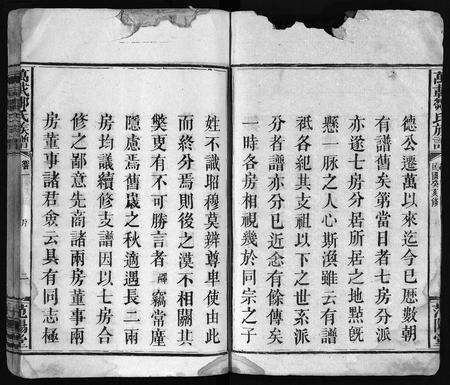 萬載鄒氏族譜
范陽堂
德公遷萬以來迄今已歷數朝
有譜舊矣第當日者七房分派
亦遂七房分居所居之地點旣
懸一脉之人心斯渙雖云有譜
祇各紀其支祖以下之世系派
分者亦分已近愈有餘傳矣
一時各房相視幾於同宗之子
姓不識昭穆莫辨尊卑使由此
而終分焉則後之漠不相關其
獘更有不可勝言者竊常廑
隱慮焉舊歲之秋適遇長二兩
房均議續修支譜因以七房合
修之鄙意先商諸兩房董事兩
房董事諸君僉云具有同志極
萬載鄒氏族譜
卷首
序
范陽堂